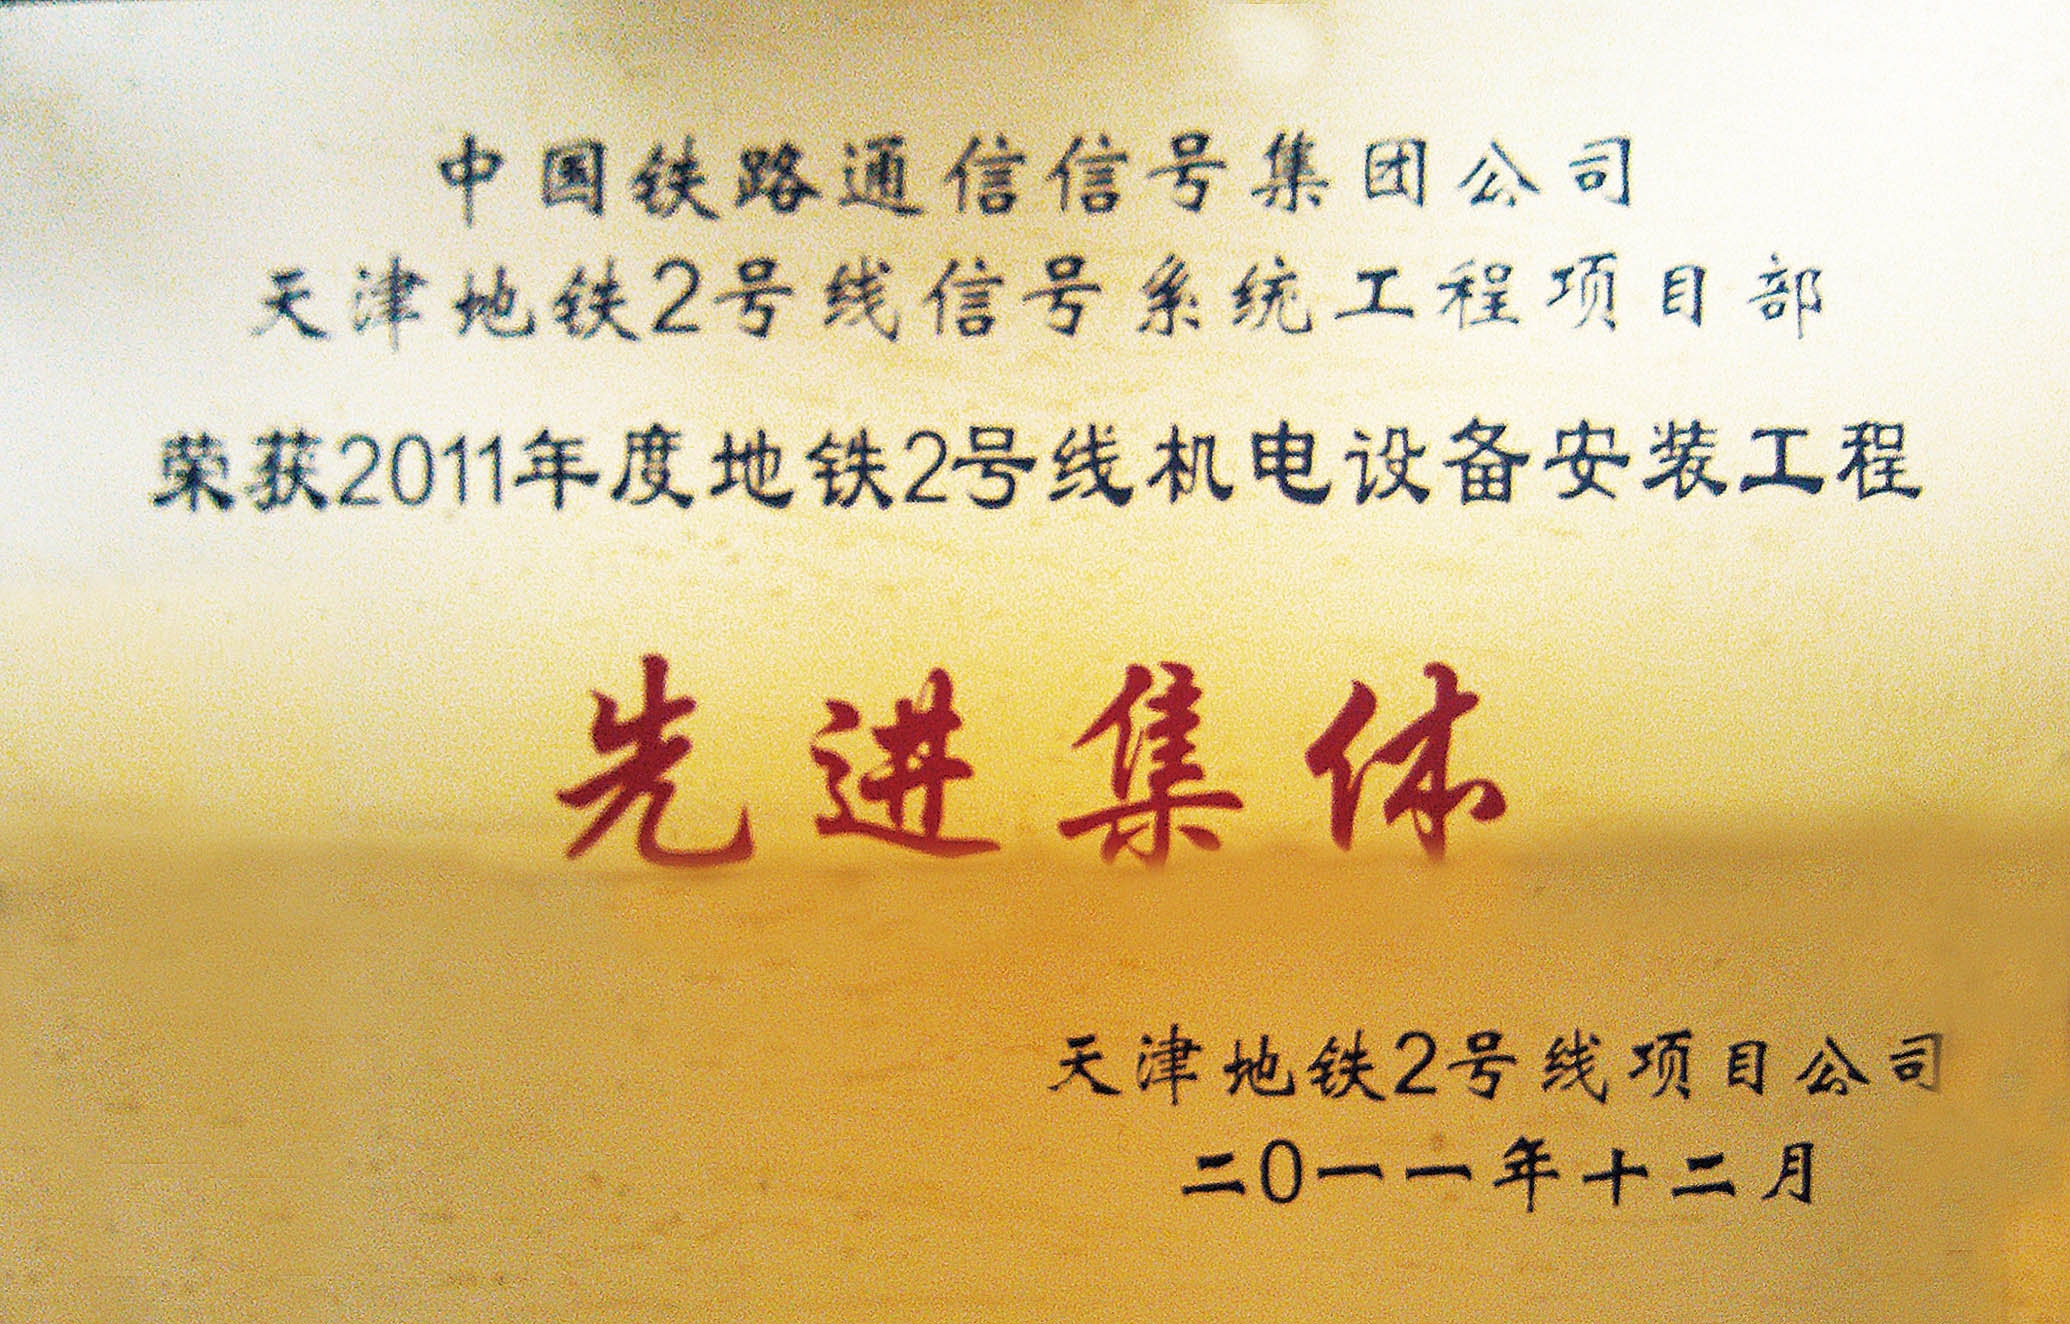 中国铁路通信信号集团公司
天津地铁2号线信号系统工程项目部
荣获2011年度地铁2号线机电设备安装工程
先进集体
天津地铁2号线项目公司
二0一一年十二月